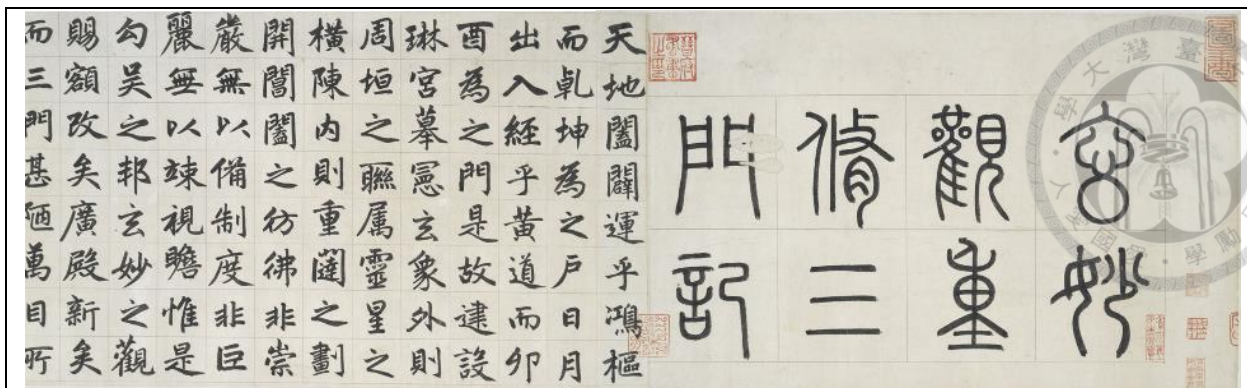 玄妙
觀重
脩三
門記
天地闔闢運乎鴻樞
而乹坤為之戶日月
出入經乎黃道而卯
酉為之門是故建設
琳宮摹憲玄象外則
周垣之聯属靈星之
橫陳内則重闥之劃
開閶闔之彷彿非崇
嚴無以備制度非巨
麗無以竦視瞻惟是
勾吴之邦玄妙之觀
賜額改矣廣殿新矣
而三門甚陋萬目所